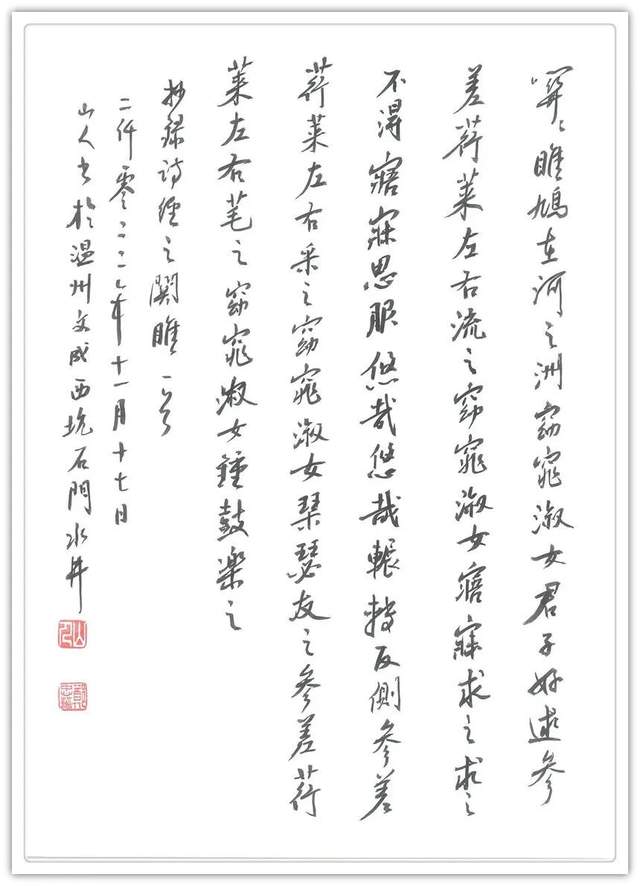 關〻雎鳩在河之洲窈窕淑女君子好逑參
差荇菜左右流之窈窕淑女寤寐求之求之
不得寤寐思服悠哉悠哉輾轉反側參差
荇菜左右采之窈窕淑女琴瑟友之參差荇
菜左右芼之窈窕淑女鍾鼓樂之
抄録诗經之關雎一首
二仟零二二年十一月十七日
山人書於温州文成西坑石門水井
山人